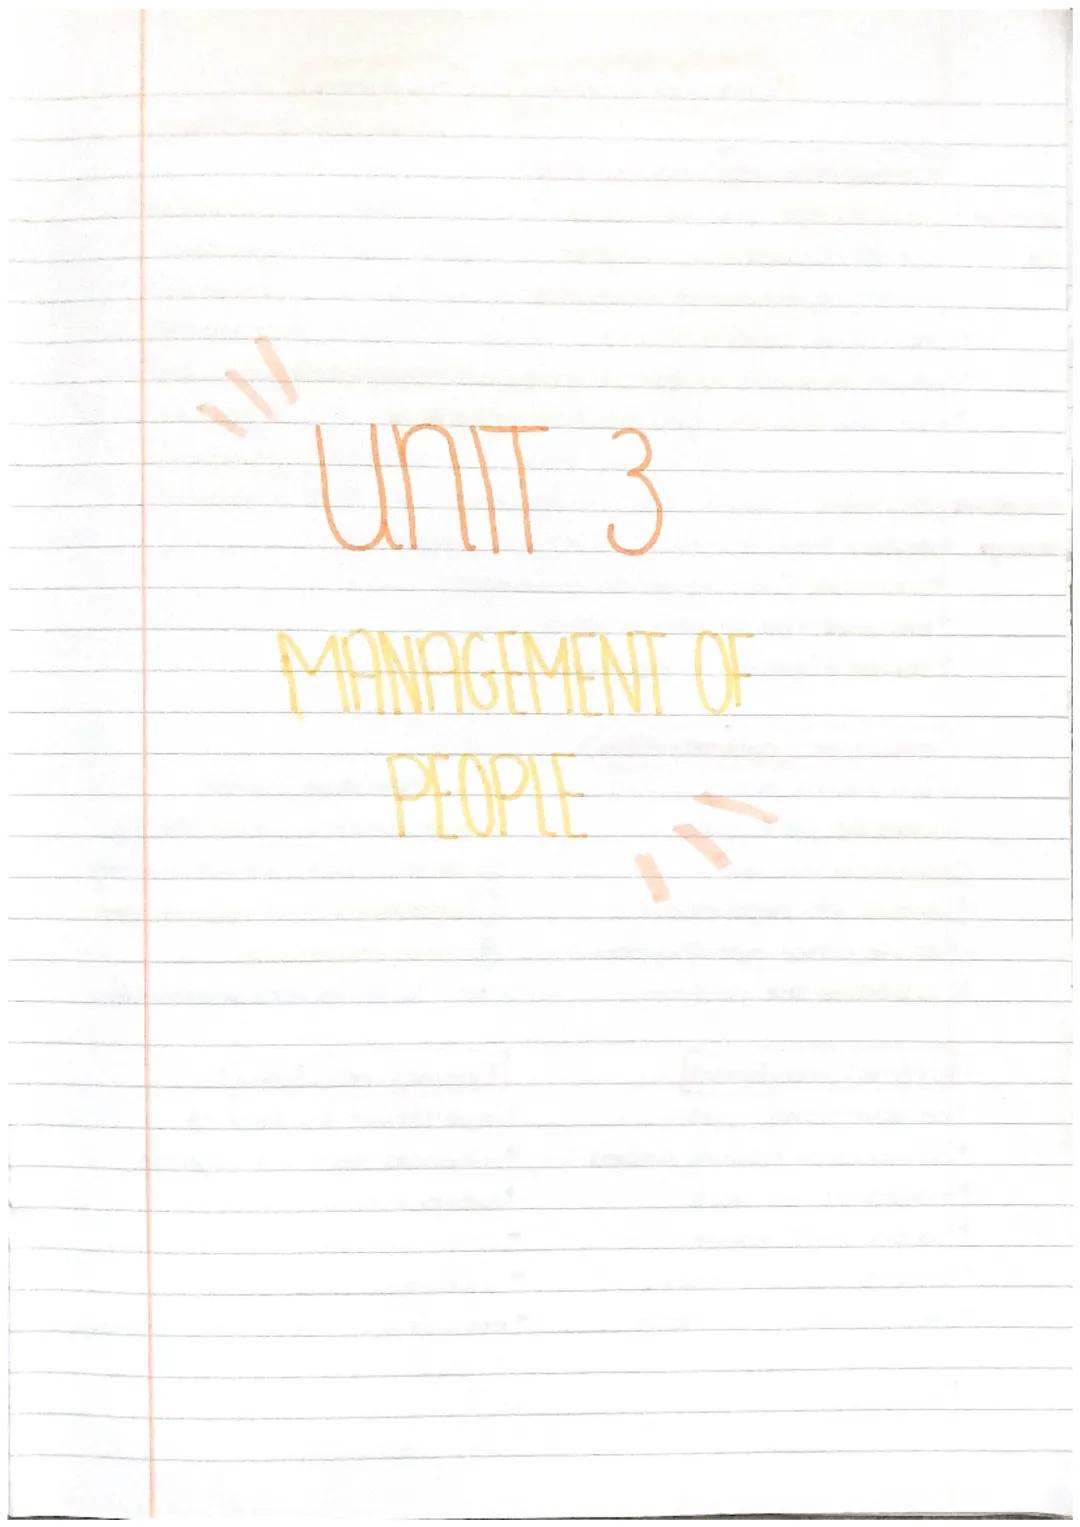 UNIT 3
MANAGEMENT OF
PEOPLE